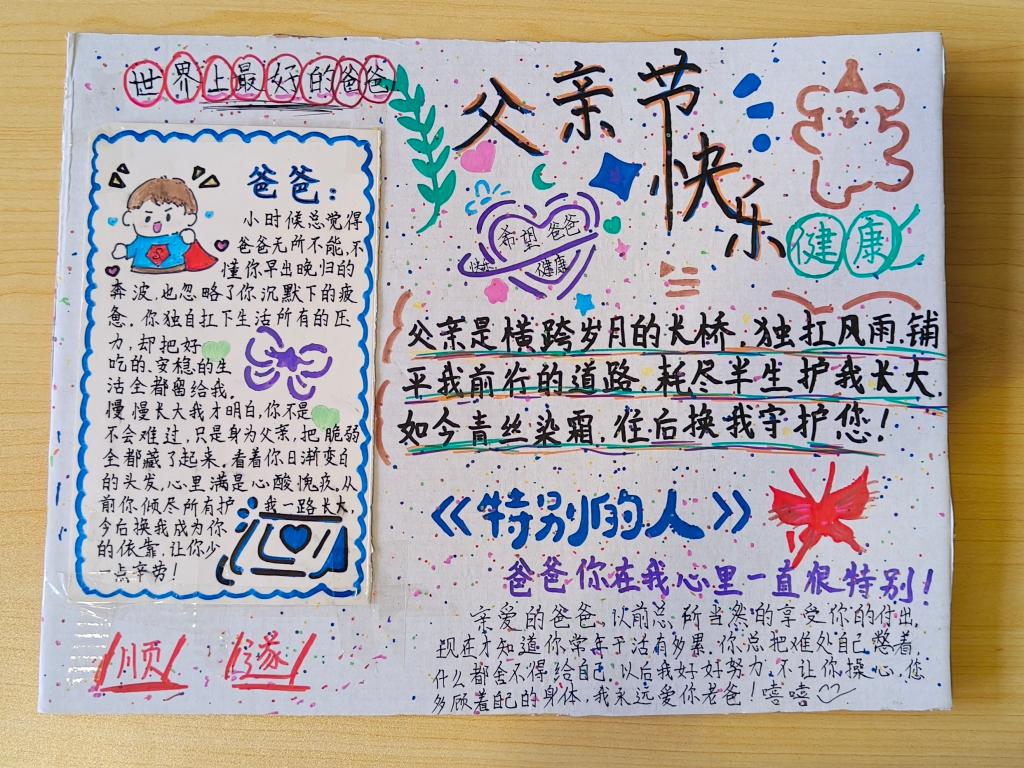 世界上最好的爸爸
父亲节
快乐
爸爸：
小时候总觉得
爸爸无所不能,不
懂你早出晚归的
奔波,也忽略了你沉默下的疲
惫.你独自扛下生活所有的压
力,却把好
吃的、安稳的生
活全都留给我.
慢慢长大我才明白,你不是
不会难过,只是身为父亲,把脆弱
全都藏了起来.看着你日渐变白
的头发,心里满是心酸愧疚.从
前你倾尽所有护我一路长大,
今后换我成为你
的依靠,让你少
一点辛劳!
希望爸爸
快乐 健康
健康
父亲是横跨岁月的大桥.独扛风雨.铺
平我前行的道路.耗尽半生护我长大.
如今青丝染霜.往后换我守护您!
《特别的人》
爸爸你在我心里一直很特别!
亲爱的爸爸,以前总所当然的享受你的付出.
现在才知道你常年干活有多累.你总把难处自己憋着.
什么都舍不得给自己.以后我好好努力.不让你操心,您
多顾着自己的身体,我永远爱你老爸!嘻嘻♡
顺 遂